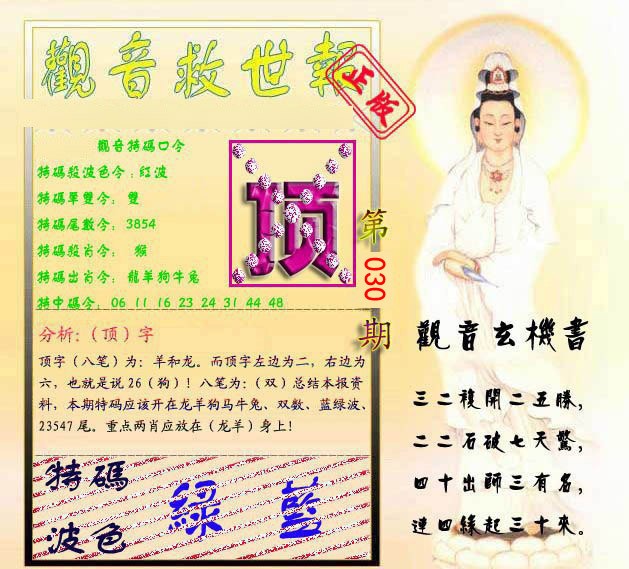 觀音救世報
正版
觀音特碼口令
特碼殺波色令：紅波
特碼單雙令： 雙
特碼尾數令： 3854
特碼殺肖令： 猴
特碼出肖令： 龍羊狗牛兔
特中碼令： 06 11 16 23 24 31 44 48
顶
第030期
分析:（顶）字
顶字（八笔）为：羊和龙。而顶字左边为二，右边为
六，也就是说26（狗）！八笔为：（双）总结本报资
料，本期特码应该开在龙羊狗马牛兔、双数、蓝绿波、
23547 尾。重点两肖应放在（龙羊）身上！
特碼
波色
綠 藍
觀音玄機書
三二複開二五勝，
二二石破七天驚，
四十出師三有名，
連四緣起三十來。